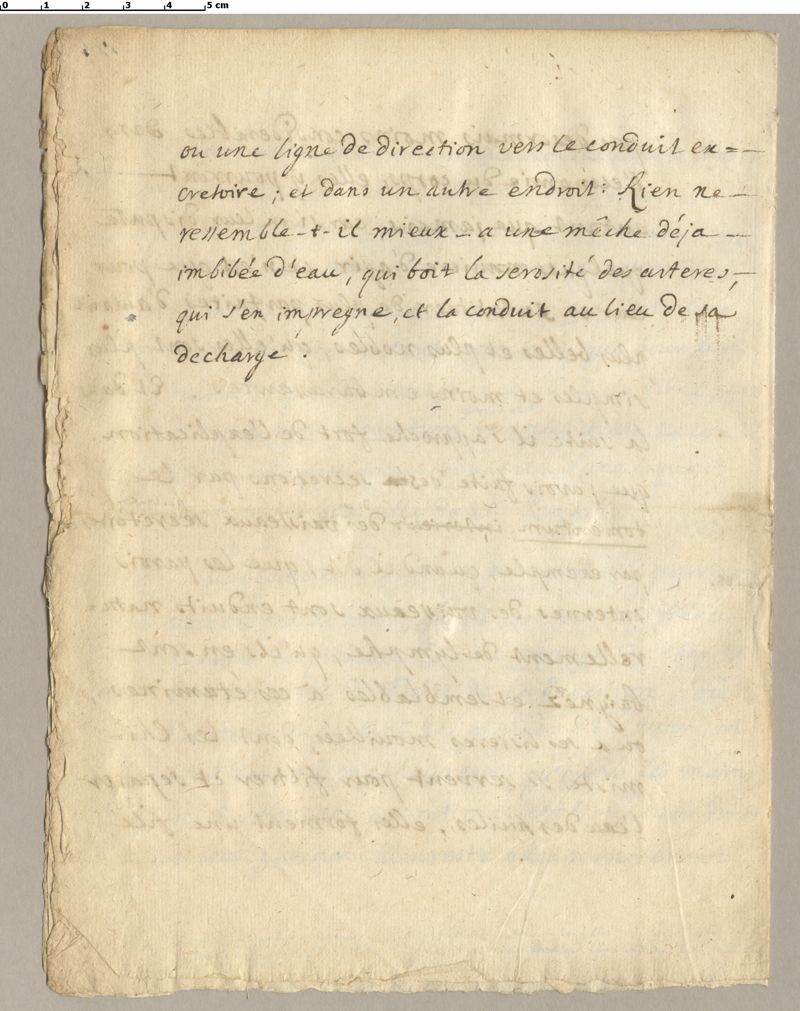 0 1 2 3 4 5 cm
ou une ligne de direction vers le conduit ex=
cretoire; et dans un autre endroit: Rien ne
ressemble-t-il mieux a une mêche déja
imbibée d'eau, qui boit la serosité des arteres,
qui s'en impregne, et la conduit au lieu de sa
decharge.